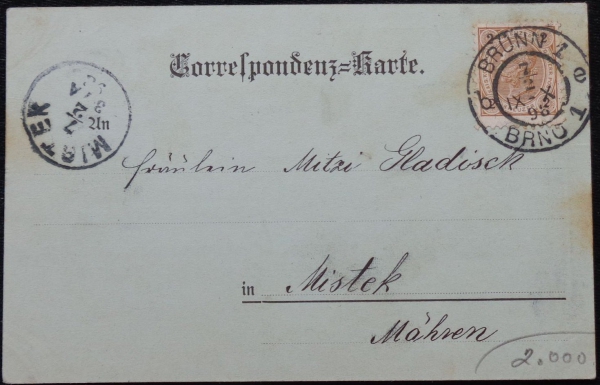 Correspondenz=Karte.
BRÜNN 1
BRNO 1
IX
98
MISTEK
An
Fräulein Mitzi Gladisck
in Mistek
Mähren
2.000